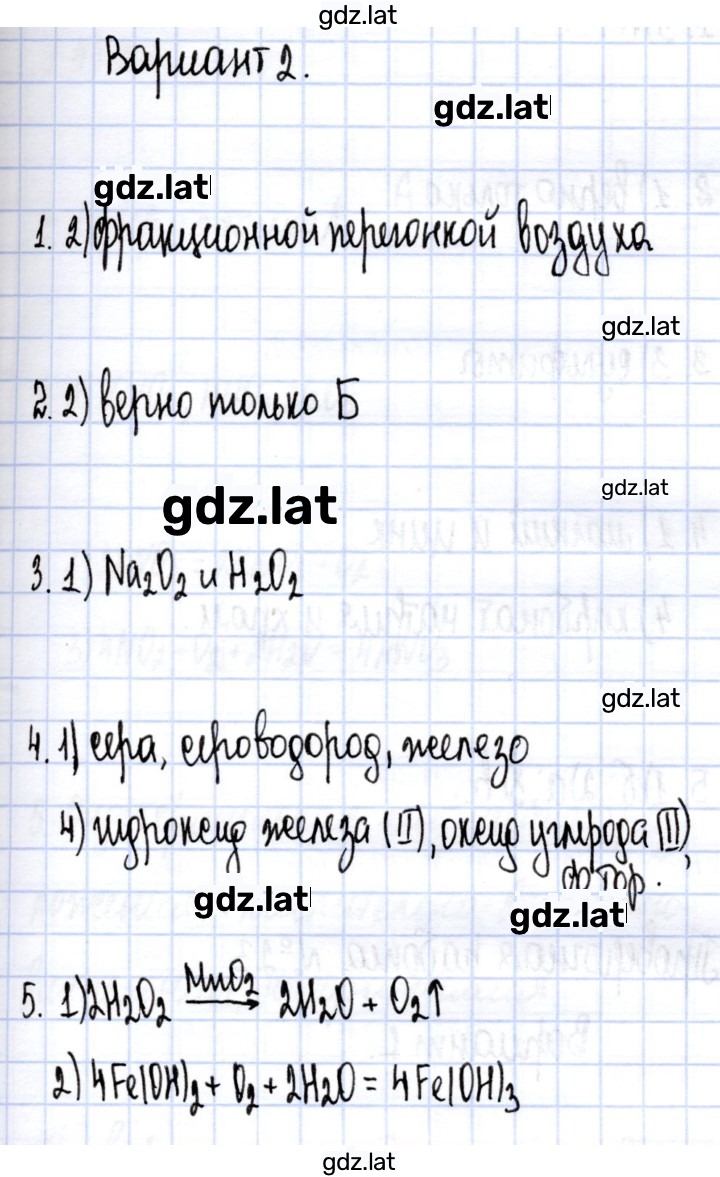 gdz.lat
Вариант 2.
gdz.lat
gdz.lat
1. 2) фракционной перегонкой воздуха
gdz.lat
2. 2) верно только Б
gdz.lat
gdz.lat
3. 1) Na₂O₂ и H₂O₂
gdz.lat
4. 1) сера, сероводород, железо
4) гидроксид железа (II), оксид углерода (II),
фтор.
gdz.lat
gdz.lat
5. 1) 2H₂O₂ MnO₂→ 2H₂O + O₂↑
2) 4Fe(OH)₂ + O₂ + 2H₂O = 4Fe(OH)₃
gdz.lat